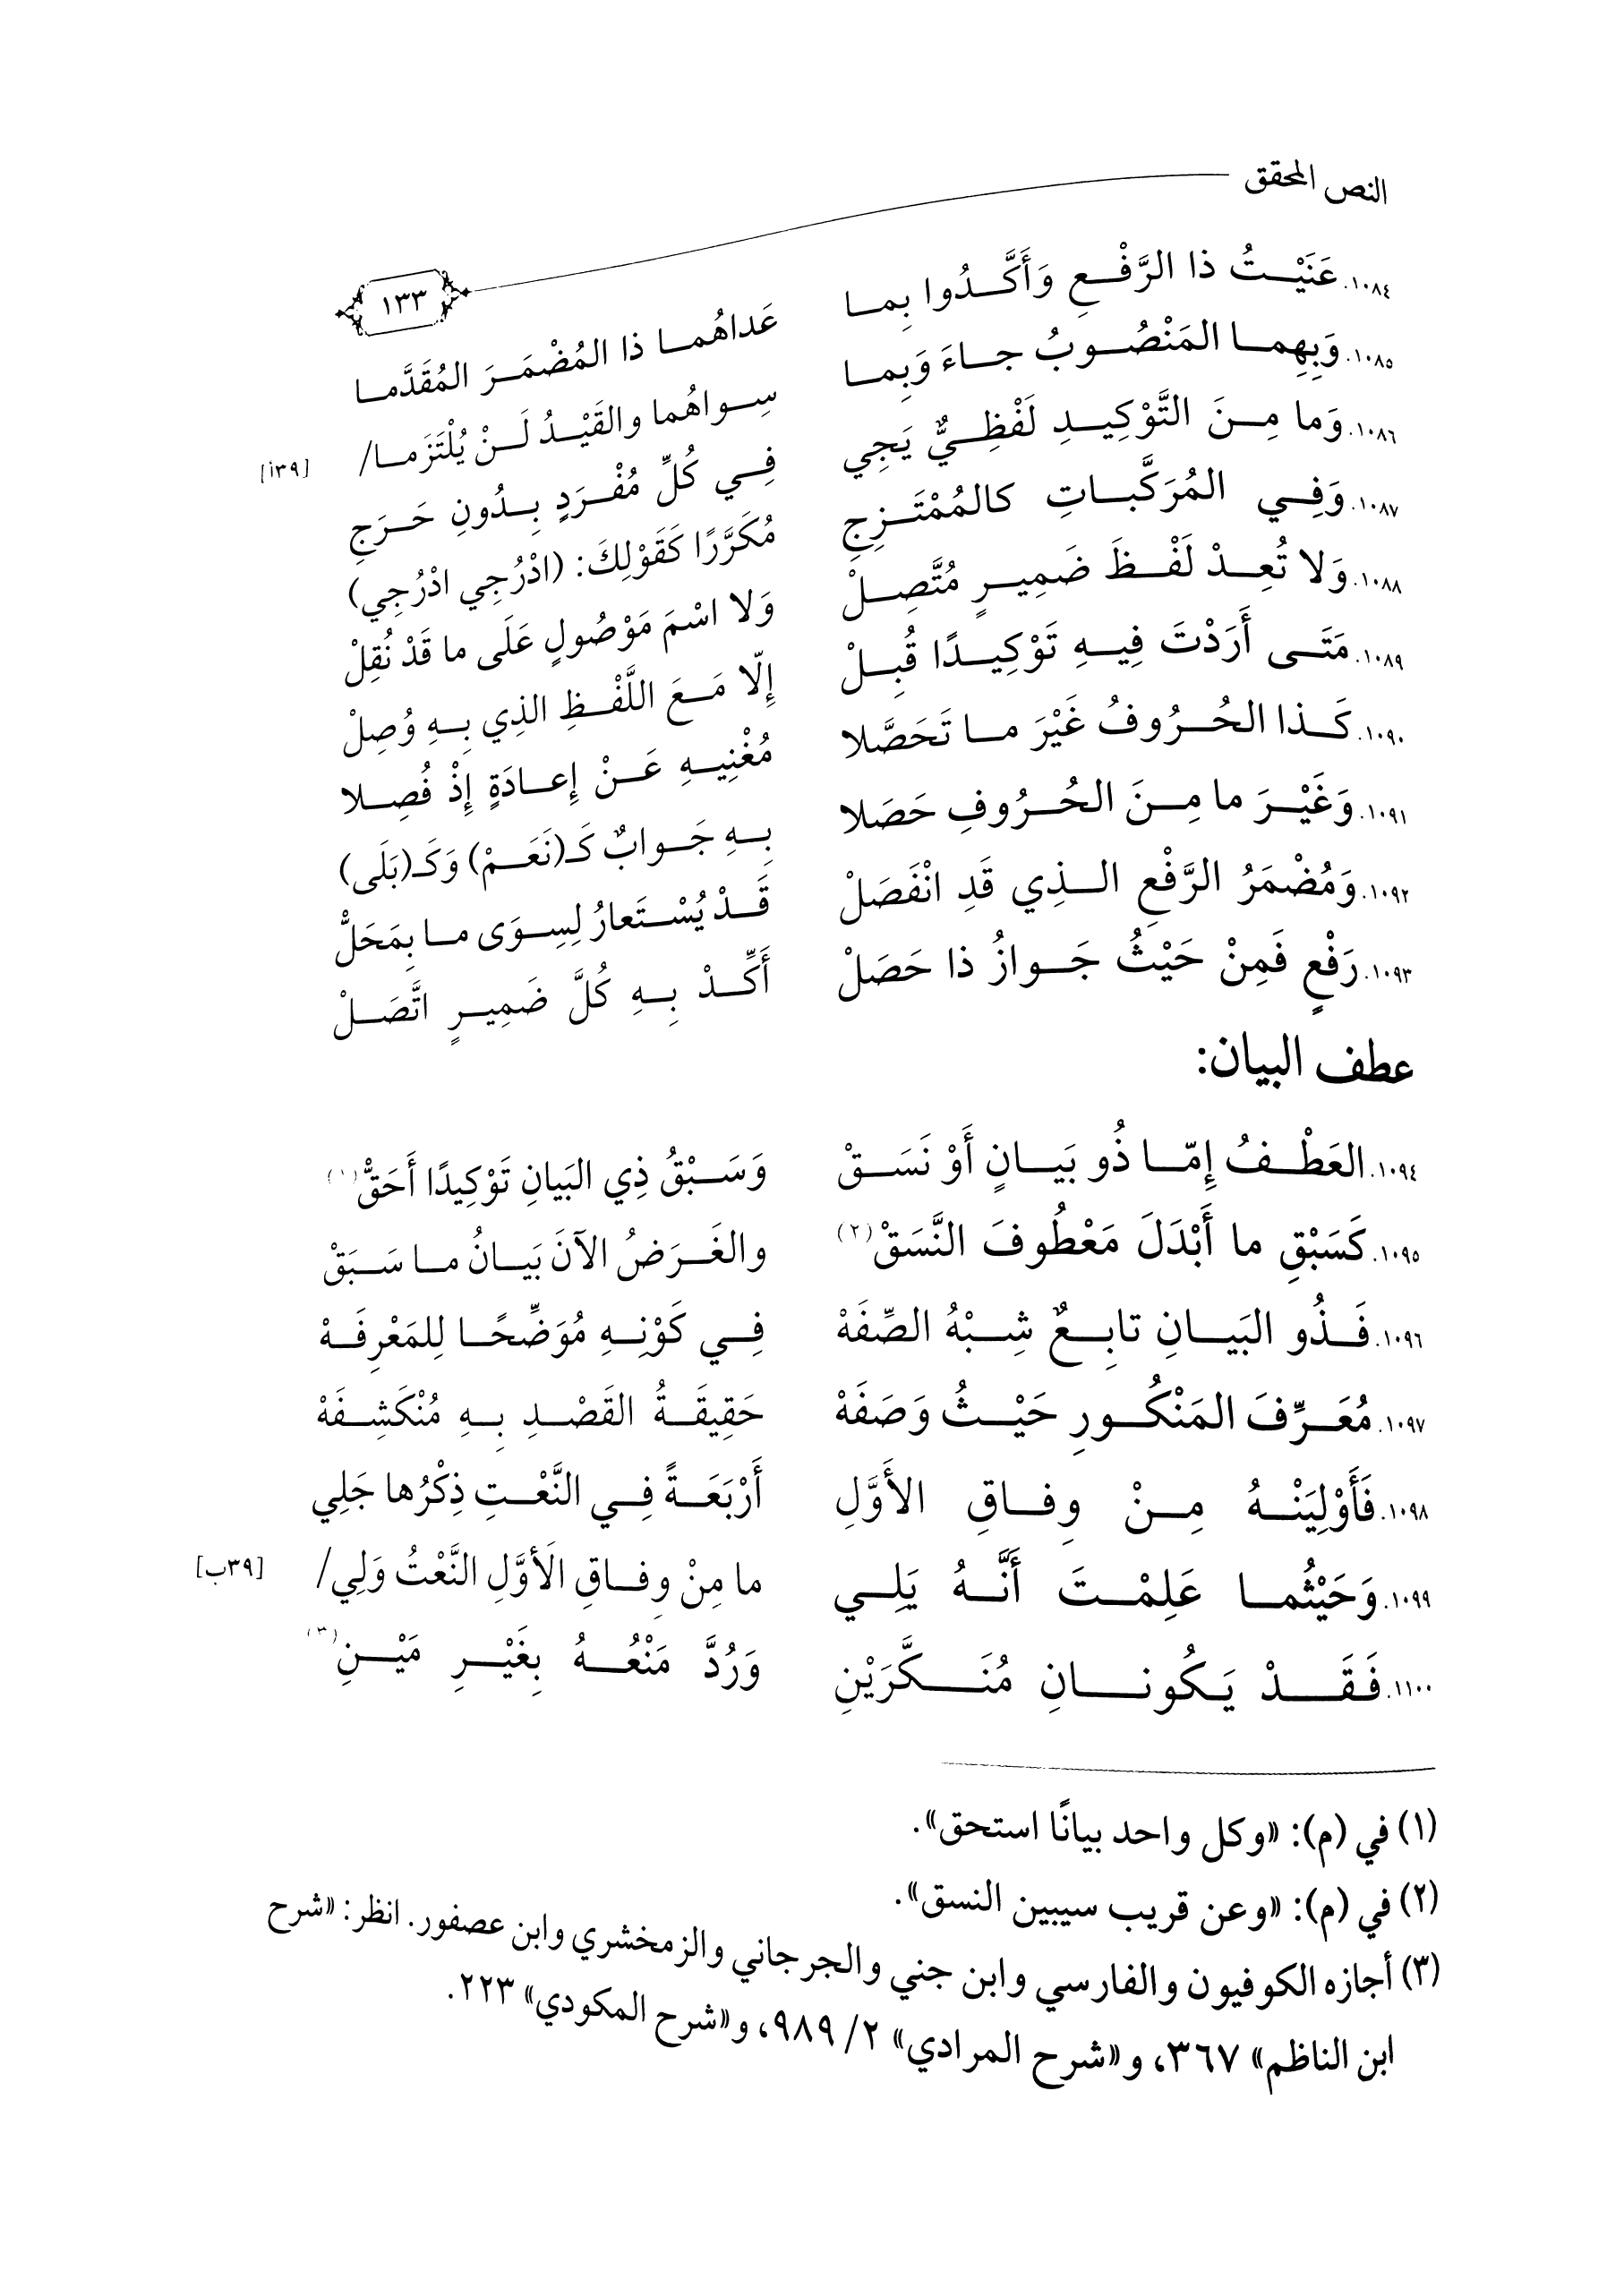 النص المحقق
١٣٣
١٠٨٤. عَنَيْتُ ذا الرَّفْعِ وَأَكَّدُوا بِما عَداهُما ذا المُضْمَرَ المُقَدَّما
١٠٨٥. وَبِهِما المَنْصُوبُ جاءَ وَبِما سِواهُما والقَيْدُ لَنْ يُلْتَزَما/ [٣٩أ]
١٠٨٦. وَما مِنَ التَّوْكِيدِ لَفْظِيٌّ يَجِي فِي كُلِّ مُفْرَدٍ بِدُونِ حَرَجِ
١٠٨٧. وَفِي المُرَكَّباتِ كالمُمْتَزِجِ مُكَرَّرًا كَقَوْلِكَ: (ادْرُجِي ادْرُجِي)
١٠٨٨. وَلا تُعِدْ لَفْظَ ضَمِيرٍ مُتَّصِلْ وَلا اسْمَ مَوْصُولٍ عَلَى ما قَدْ نُقِلْ
١٠٨٩. مَتَى أَرَدْتَ فِيهِ تَوْكِيدًا قُبِلْ إِلّا مَعَ اللَّفْظِ الذِي بِهِ وُصِلْ
١٠٩٠. كَذا الحُرُوفُ غَيْرَ ما تَحَصَّلا مُغْنِيهِ عَنْ إِعادَةٍ إِذْ فُصِلا
١٠٩١. وَغَيْرَ ما مِنَ الحُرُوفِ حَصَلا بِهِ جَوابٌ كَـ(نَعَمْ) وَكَـ(بَلَى)
١٠٩٢. وَمُضْمَرُ الرَّفْعِ الذِي قَدِ انْفَصَلْ قَدْ يُسْتَعارُ لِسِوَى ما بِمَحَلْ
١٠٩٣. رَفْعٍ فَمِنْ حَيْثُ جَوازُ ذا حَصَلْ أَكِّدْ بِهِ كُلَّ ضَمِيرٍ اتَّصَلْ
عطف البيان:
١٠٩٤. العَطْفُ إِمّا ذُو بَيانٍ أَوْ نَسَقْ وَسَبْقُ ذِي البَيانِ تَوْكِيدًا أَحَقّْ(١)
١٠٩٥. كَسَبْقِ ما أَبْدَلَ مَعْطُوفَ النَّسَقْ(٢) والغَرَضُ الآنَ بَيانُ ما سَبَقْ
١٠٩٦. فَذُو البَيانِ تابِعٌ شِبْهُ الصِّفَهْ فِي كَوْنِهِ مُوَضِّحًا لِلمَعْرِفَهْ
١٠٩٧. مُعَرِّفَ المَنْكُورِ حَيْثُ وَصَفَهْ حَقِيقَةُ القَصْدِ بِهِ مُنْكَشِفَهْ
١٠٩٨. فَأَوْلِيَنْهُ مِنْ وِفاقِ الأَوَّلِ أَرْبَعَةً فِي النَّعْتِ ذِكْرُها جَلِي
١٠٩٩. وَحَيْثُما عَلِمْتَ أَنَّهُ يَلِي ما مِنْ وِفاقِ الَأوَّلِ النَّعْتُ وَلِي/ [٣٩ب]
١١٠٠. فَقَدْ يَكُونانِ مُنَكَّرَيْنِ وَرُدَّ مَنْعُهُ بِغَيْرِ مَيْنِ(٣)
(١) في (م): «وكل واحد بيانًا استحق».
(٢) في (م): «وعن قريب سيبين النسق».
(٣) أجازه الكوفيون والفارسي وابن جني والجرجاني والزمخشري وابن عصفور. انظر: «شرح
ابن الناظم» ٣٦٧، و«شرح المرادي» ٢/ ٩٨٩، و«شرح المكودي» ٢٢٣.